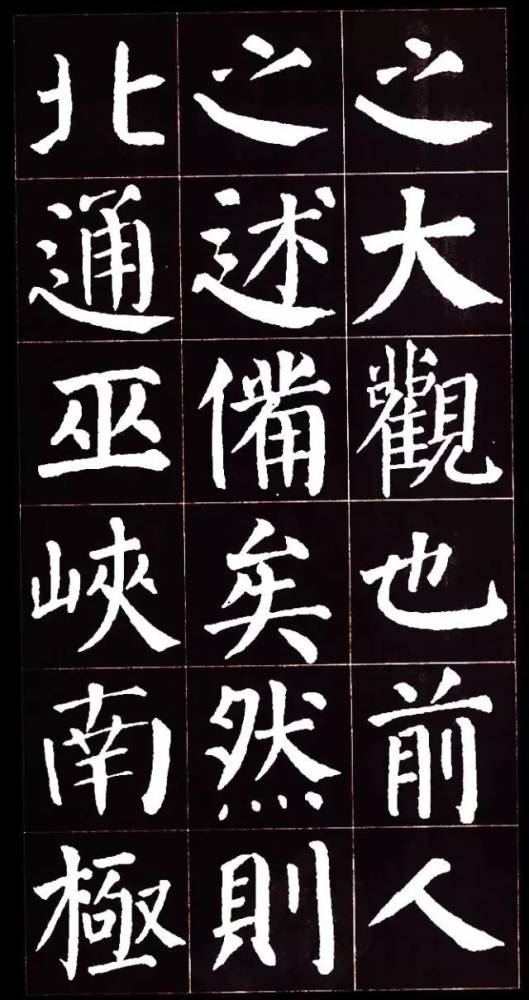 之大觀也前人
之述備矣然則
北通巫峽南極